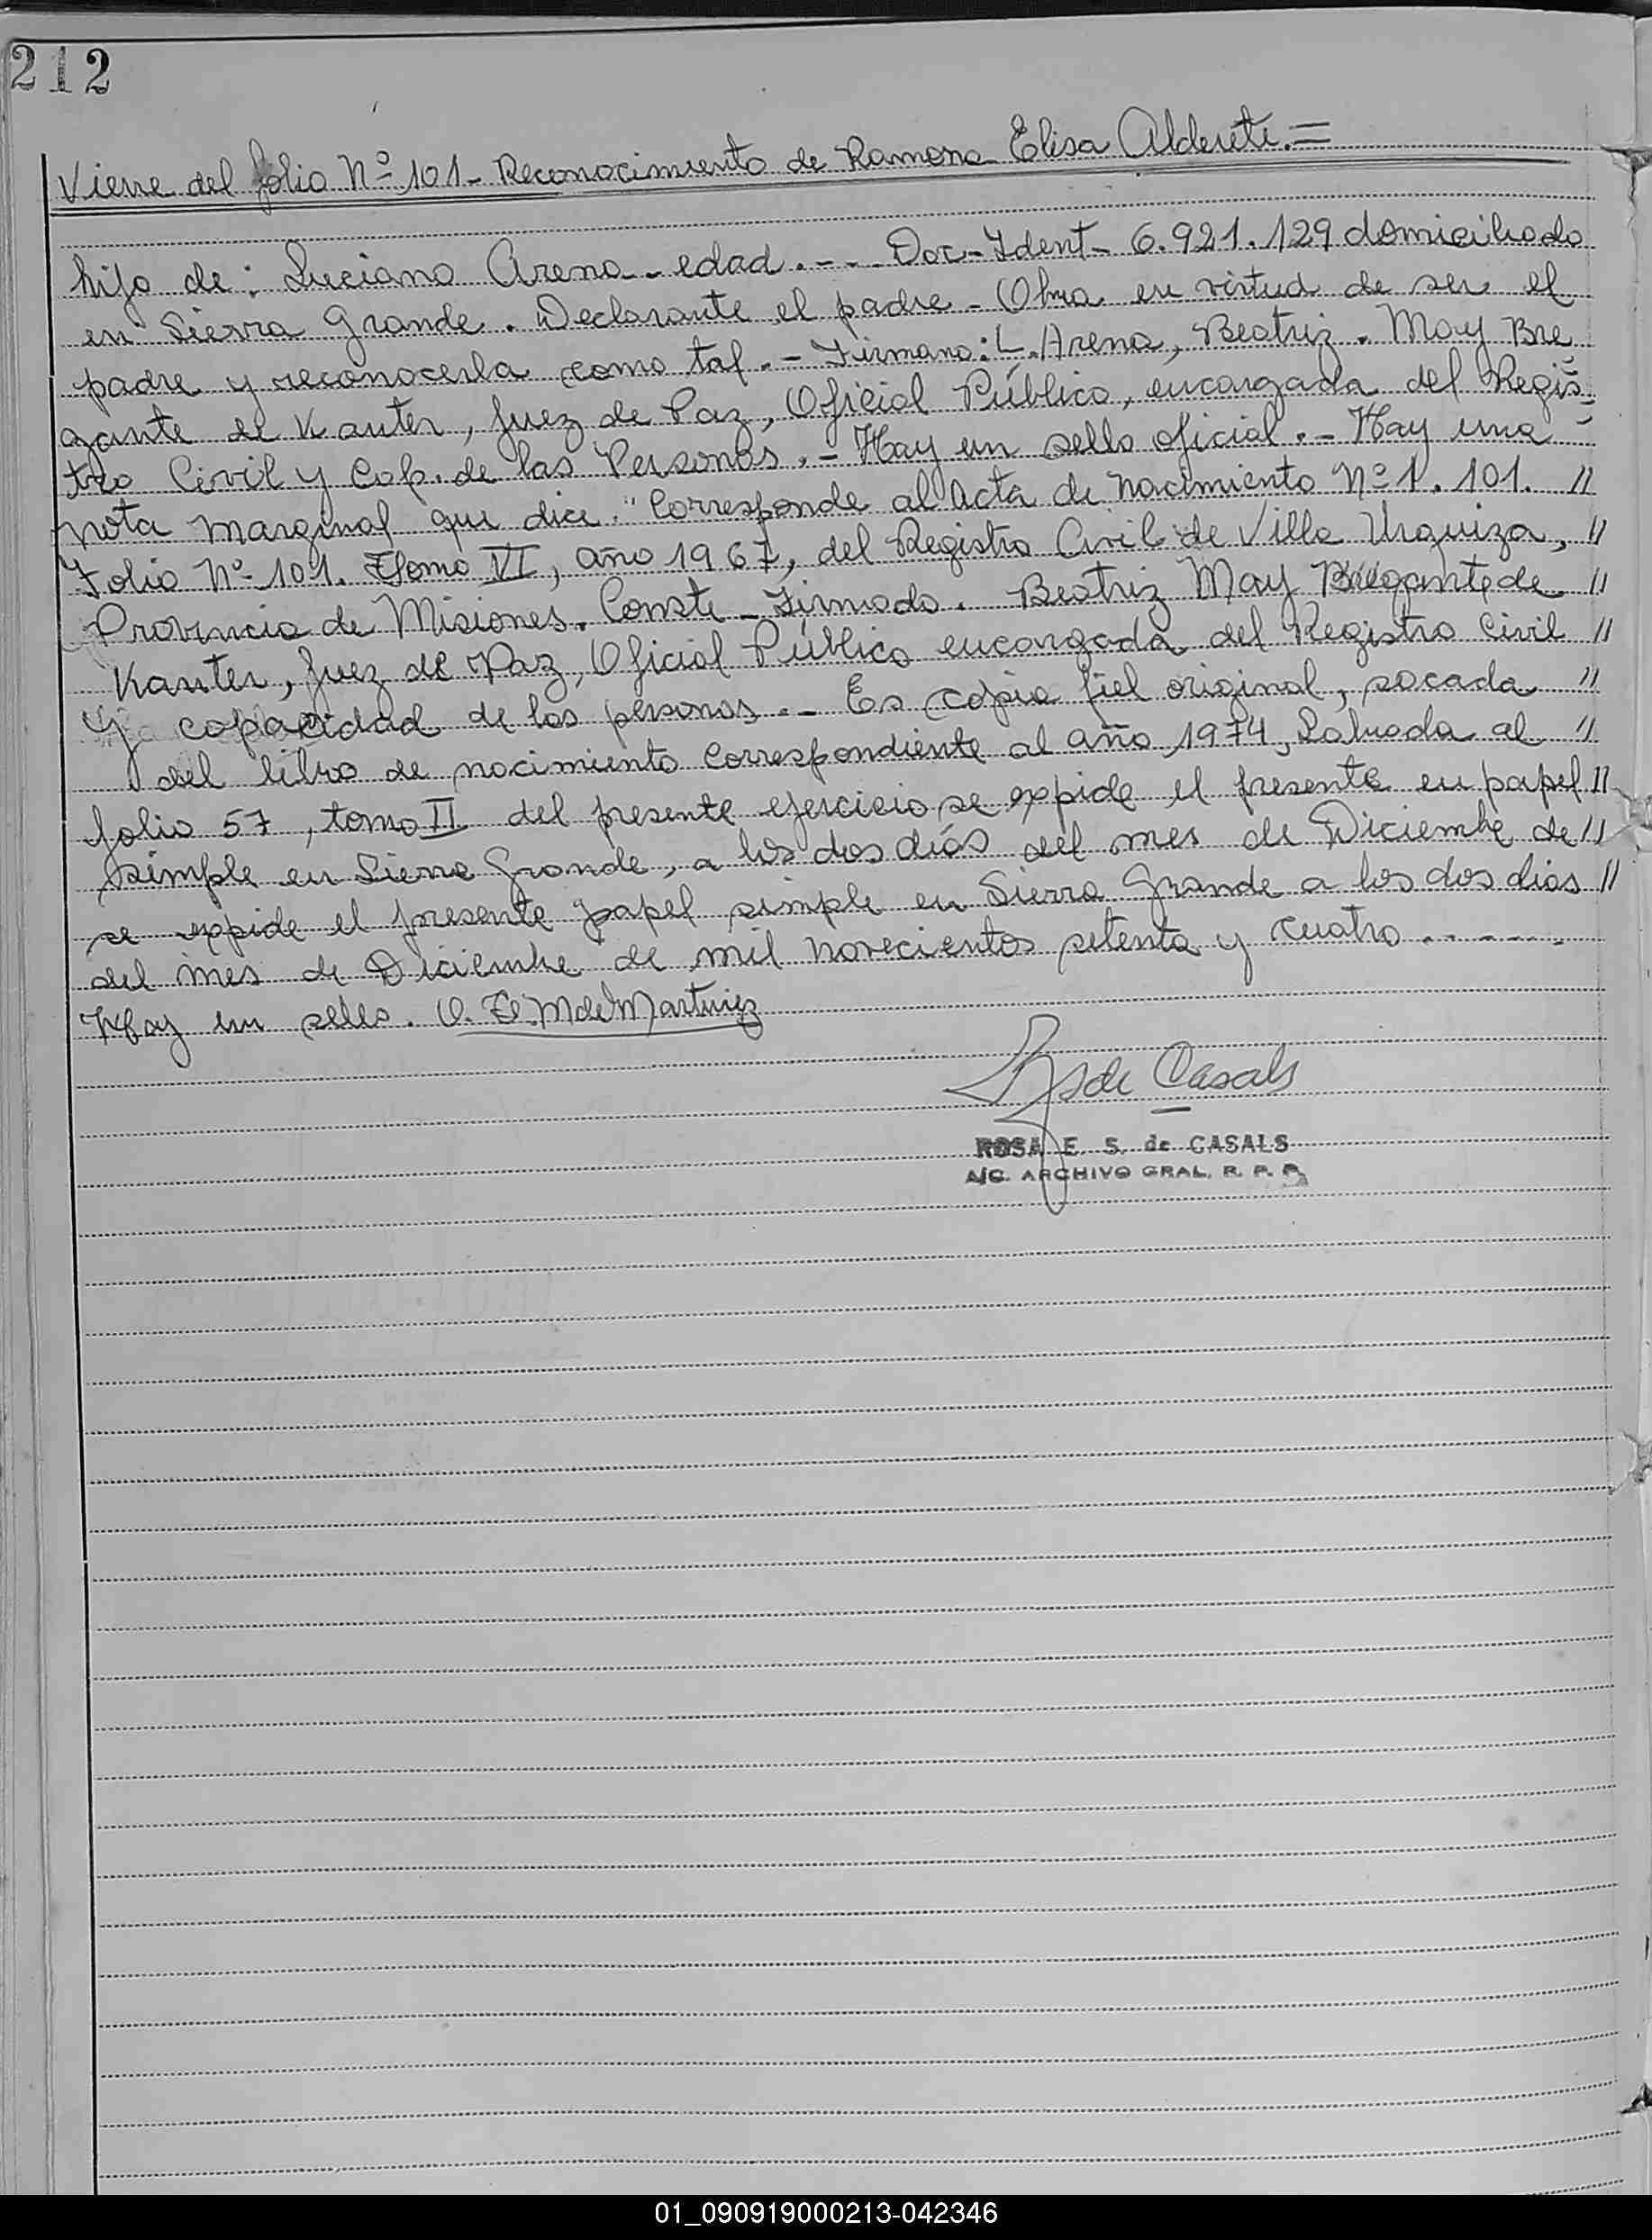 212
Viene del folio Nº 101 - Reconocimiento de Ramona Elisa Alderete.=
hijo de: Luciano Arena - edad .--- Doc-Ident- 6.921.129 domiciliado
en Sierra Grande. Declarante el padre - Obra en virtud de ser el
padre y reconocerla como tal. - Firmano: L. Arena, Beatriz. May Bre
gante de Kanter, Juez de Paz, Oficial Público, encargada del Regis=
tro Civil y Cap. de las Personas. - Hay un sello oficial. - Hay una =
nota marginal que dice. "Corresponde al Acta de nacimiento Nº 1. 101. //
Folio Nº 101. Tomo VI, año 1967, del Registro Civil de Villa Urquiza, //
Provincia de Misiones. Conste - Firmado. Beatriz May Bregante de //
Kanter, Juez de Paz, Oficial Público encargada del Registro Civil //
y capacidad de las personas. - Es copia fiel original, sacada //
del libro de nacimiento correspondiente al año 1974, Labrada al //
folio 57, tomo II del presente ejercicio se expide el presente en papel //
simple en Sierra Grande, a los dos días del mes de Diciembre de //
se expide el presente papel simple en Sierra Grande a los dos días //
del mes de Diciembre de mil novecientos setenta y cuatro .-----
Hay un sello. O. E. M de Martinez
de Casals
ROSA E. S. de CASALS
A/C. ARCHIVO GRAL. R. P. P.
01_090919000213-042346